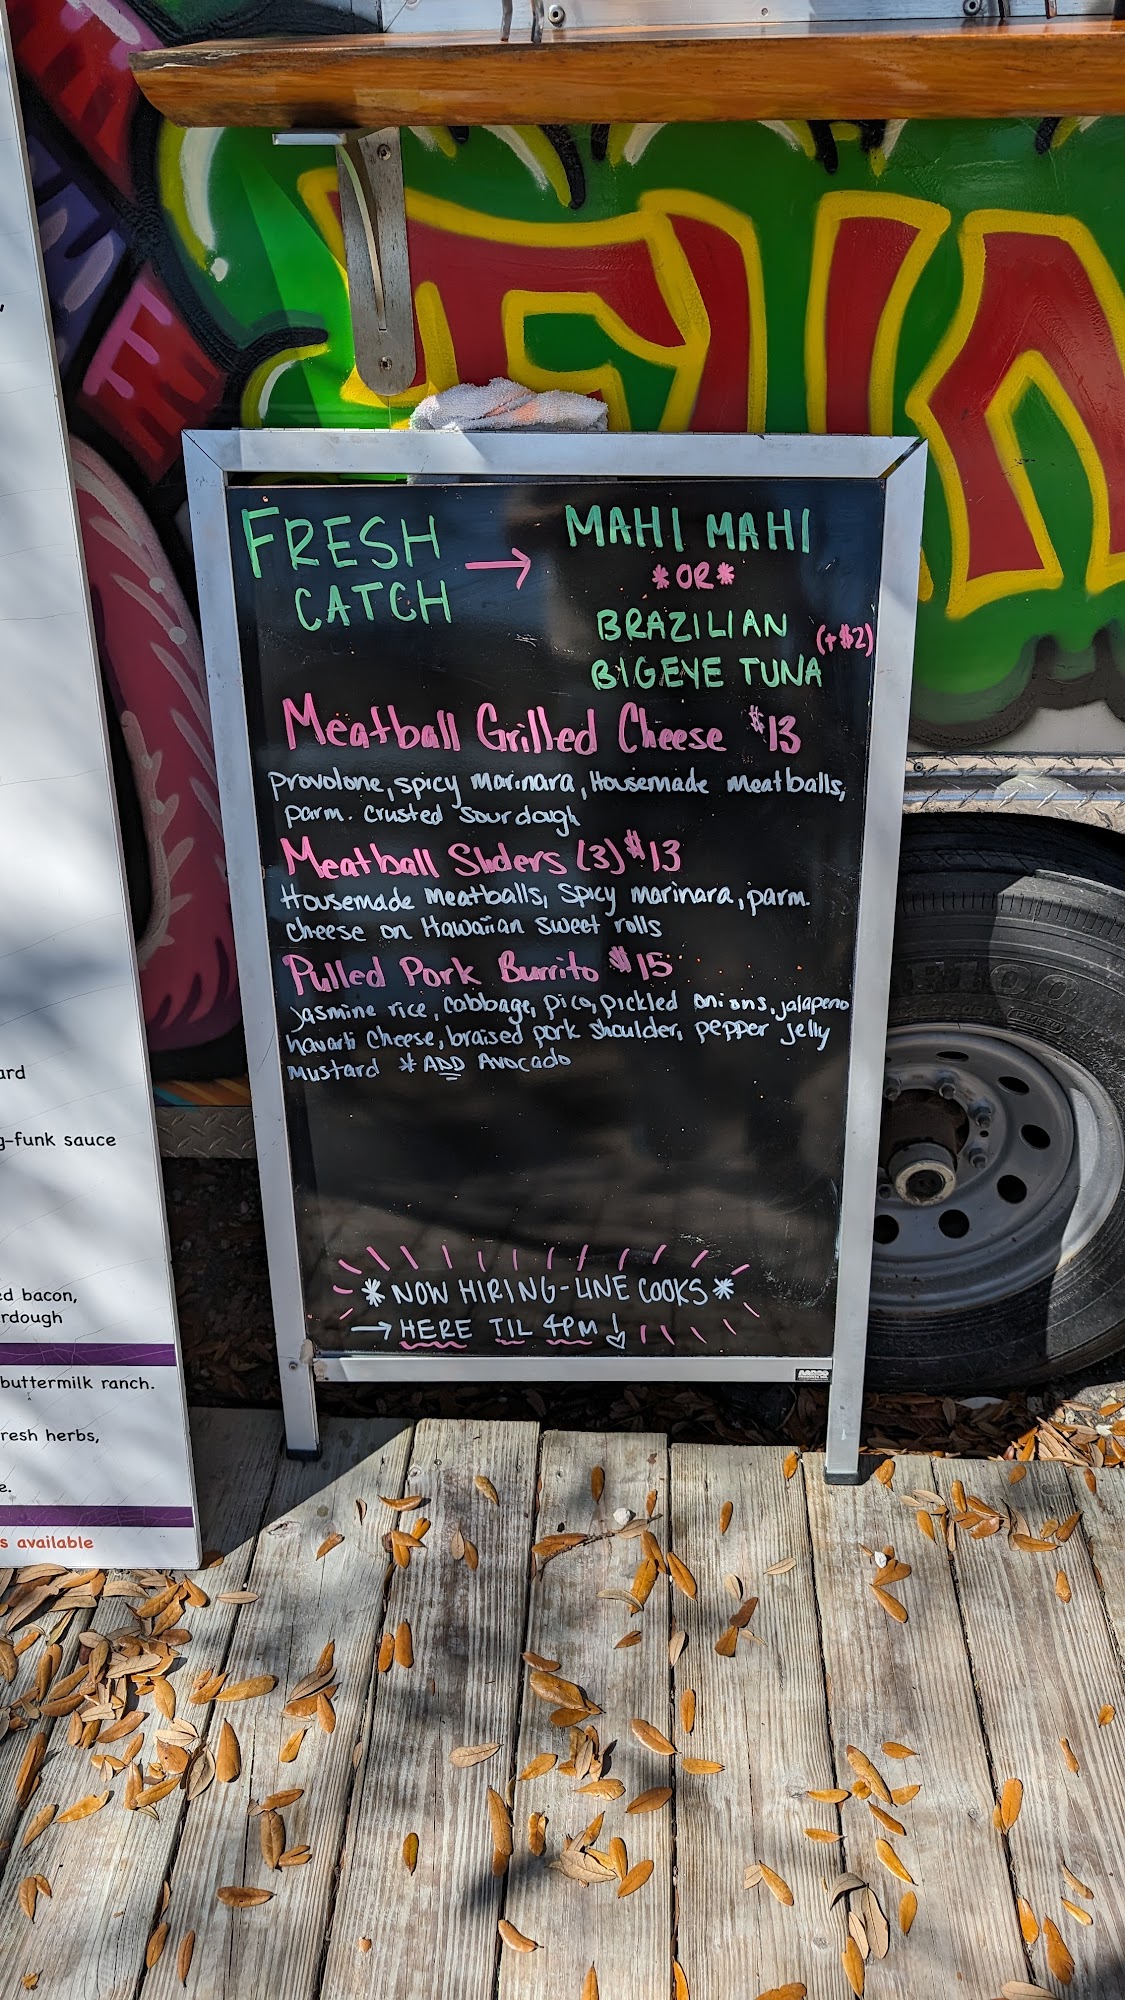 FRESH
CATCH
→
MAHI MAHI
*OR*
BRAZILIAN
BIGEYE TUNA
(+$2)
Meatball Grilled Cheese $13
Provolone, spicy marinara, Housemade meatballs,
parm. crusted sourdough
Meatball Sliders (3) $13
Housemade Meatballs, spicy marinara, parm.
cheese on Hawaiian sweet rolls
Pulled Pork Burrito $15
jasmine rice, cabbage, pico, pickled onions, jalapeno
havarti cheese, braised pork shoulder, pepper jelly
mustard * ADD Avocado
*NOW HIRING-LINE COOKS*
→ HERE TIL 4PM!
ard
g-funk sauce
ed bacon,
rdough
buttermilk ranch.
resh herbs,
e.
s available
FUN